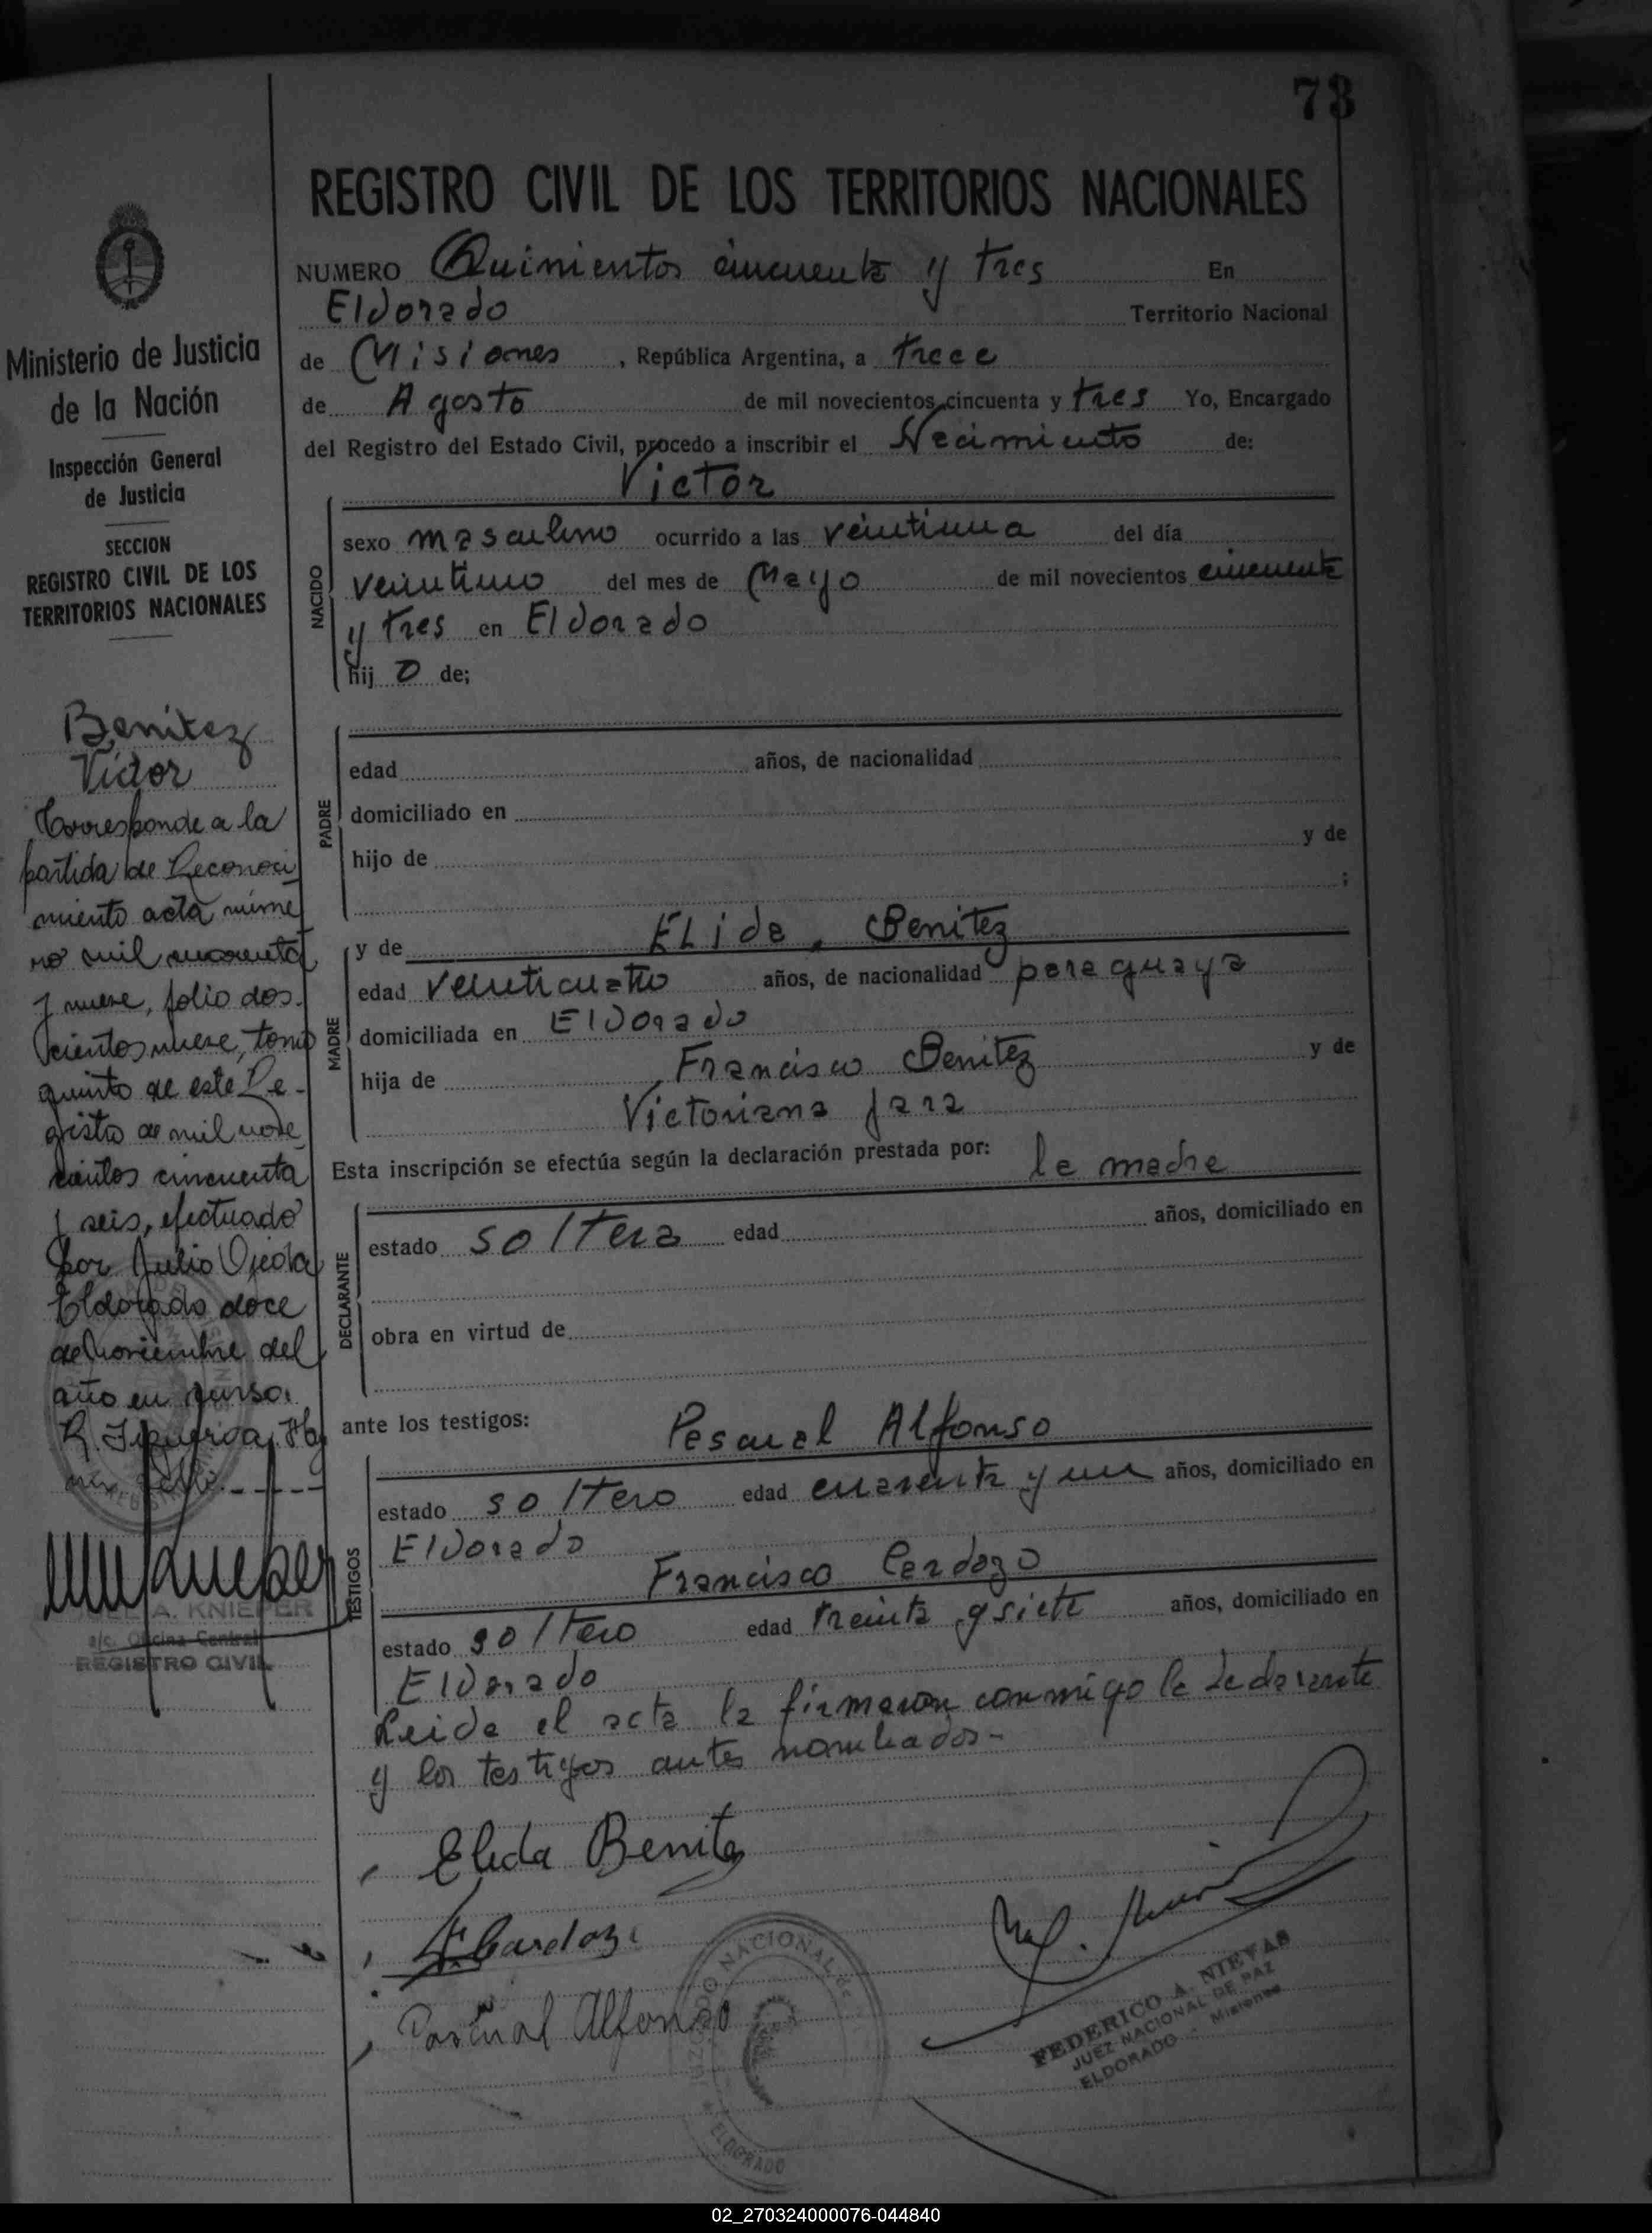 73
REGISTRO CIVIL DE LOS TERRITORIOS NACIONALES
NUMERO Quinientos cincuenta y tres En
Eldorado Territorio Nacional
de Misiones, República Argentina, a trece
de Agosto de mil novecientos cincuenta y tres Yo, Encargado
del Registro del Estado Civil, procedo a inscribir el Nacimiento de:
Victor
NACIDO
sexo masculino ocurrido a las veintiuna del día
veintiuno del mes de Mayo de mil novecientos cincuenta
y tres en Eldorado
hij o de;
PADRE
edad años, de nacionalidad
domiciliado en
hijo de y de
;
MADRE
y de Elida Benitez
edad veinticuatro años, de nacionalidad paraguaya
domiciliada en Eldorado
hija de Francisco Benitez y de
Victoriana Jara
Esta inscripción se efectúa según la declaración prestada por: la madre
DECLARANTE
estado soltera edad años, domiciliado en
obra en virtud de
ante los testigos: Pascual Alfonso
TESTIGOS
estado soltero edad cuarenta y un años, domiciliado en
Eldorado
Francisco Cardozo
estado soltero edad treinta y siete años, domiciliado en
Eldorado
Leida el acta la firmaron conmigo la declarante
y los testigos antes nombrados-
Elida Benitez
Pascual Alfonso
JUZGADO NACIONAL DE
ELDORADO
FEDERICO A. NIEVAS
JUEZ NACIONAL DE PAZ
ELDORADO - Misiones
Ministerio de Justicia
de la Nación
Inspección General
de Justicia
SECCION
REGISTRO CIVIL DE LOS
TERRITORIOS NACIONALES
Benitez
Victor
Corresponde a la
partida de Reconoci
miento acta núme
ro mil
y nueve, folio dos-
cientos nueve, tomo
quinto de este Re-
gistro de mil nove
cientos cincuenta
y seis, efectuado
por Julio Ojeda
Eldorado doce
de Noviembre del
año en curso.
R. Figueroa. Hay
un sello.----
A. KNIEPER
a/c. Oficina Central
REGISTRO CIVIL
02_270324000076-044840